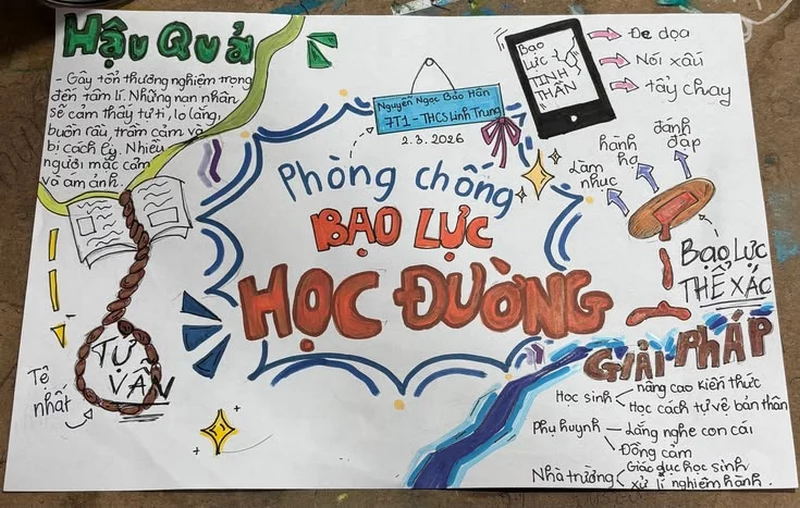 Hậu Quả
- Gây tổn thương nghiêm trọng
đến tâm lí. Những nạn nhân
sẽ cảm thấy tự ti, lo lắng,
buồn rầu, trầm cảm và
bị cách ly. Nhiều
người mắc cảm
và ám ảnh.
Tệ
nhất
TỰ
VẪN
Nguyễn Ngọc Bảo Hân
7T1 - THCS Linh Trung
2.3.2026
Phòng chống
BẠO LỰC
HỌC ĐƯỜNG
BẠO
LỰC
TINH
THẦN
Đe dọa
Nói xấu
tẩy chay
Làm
nhục
hành
hạ
đánh
đập
BẠO LỰC
THỂ XÁC
GIẢI PHÁP
Học sinh
nâng cao kiến thức
Học cách tự vệ bản thân
Phụ huynh
Lắng nghe con cái
Đồng cảm
Nhà trường
Giáo dục học sinh
xử lí nghiêm hành.